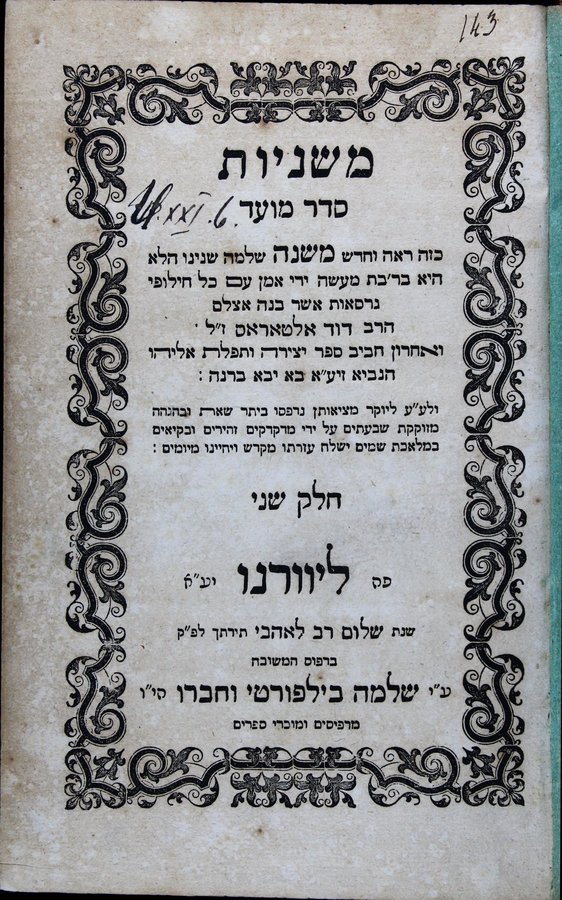 143
משניות
סדר מועד
כזה ראה וחדש משנה שלמה שנינו הלא
היא בר׳בת מעשה ידי אמן עם כל חילופי
גרסאות אשר בנה אצלם
הרב דוד אלטאראס ז״ל ׳
ואחרון חביב ספר יצירה ותפלת אליהו
הנביא זיע״א בא יבא ברנה :
ולע״ע ליוקר מציאותן נדפסו ביתר שארת ובהגהה
מזוקקת שבעתים על ידי מדקדקים זהירים ובקיאים
במלאכת שמים ישלח עזרתו מקדש ויחיינו מיומים :
חלק שני
פה ליוורנו יע״א
שנת שלום רב לאהבי תירתך לפ״ק
בדפוס המשובח
ע״י שלמה בילפורטי וחברו הי״ו
מדפיסים ומוכרי ספרים